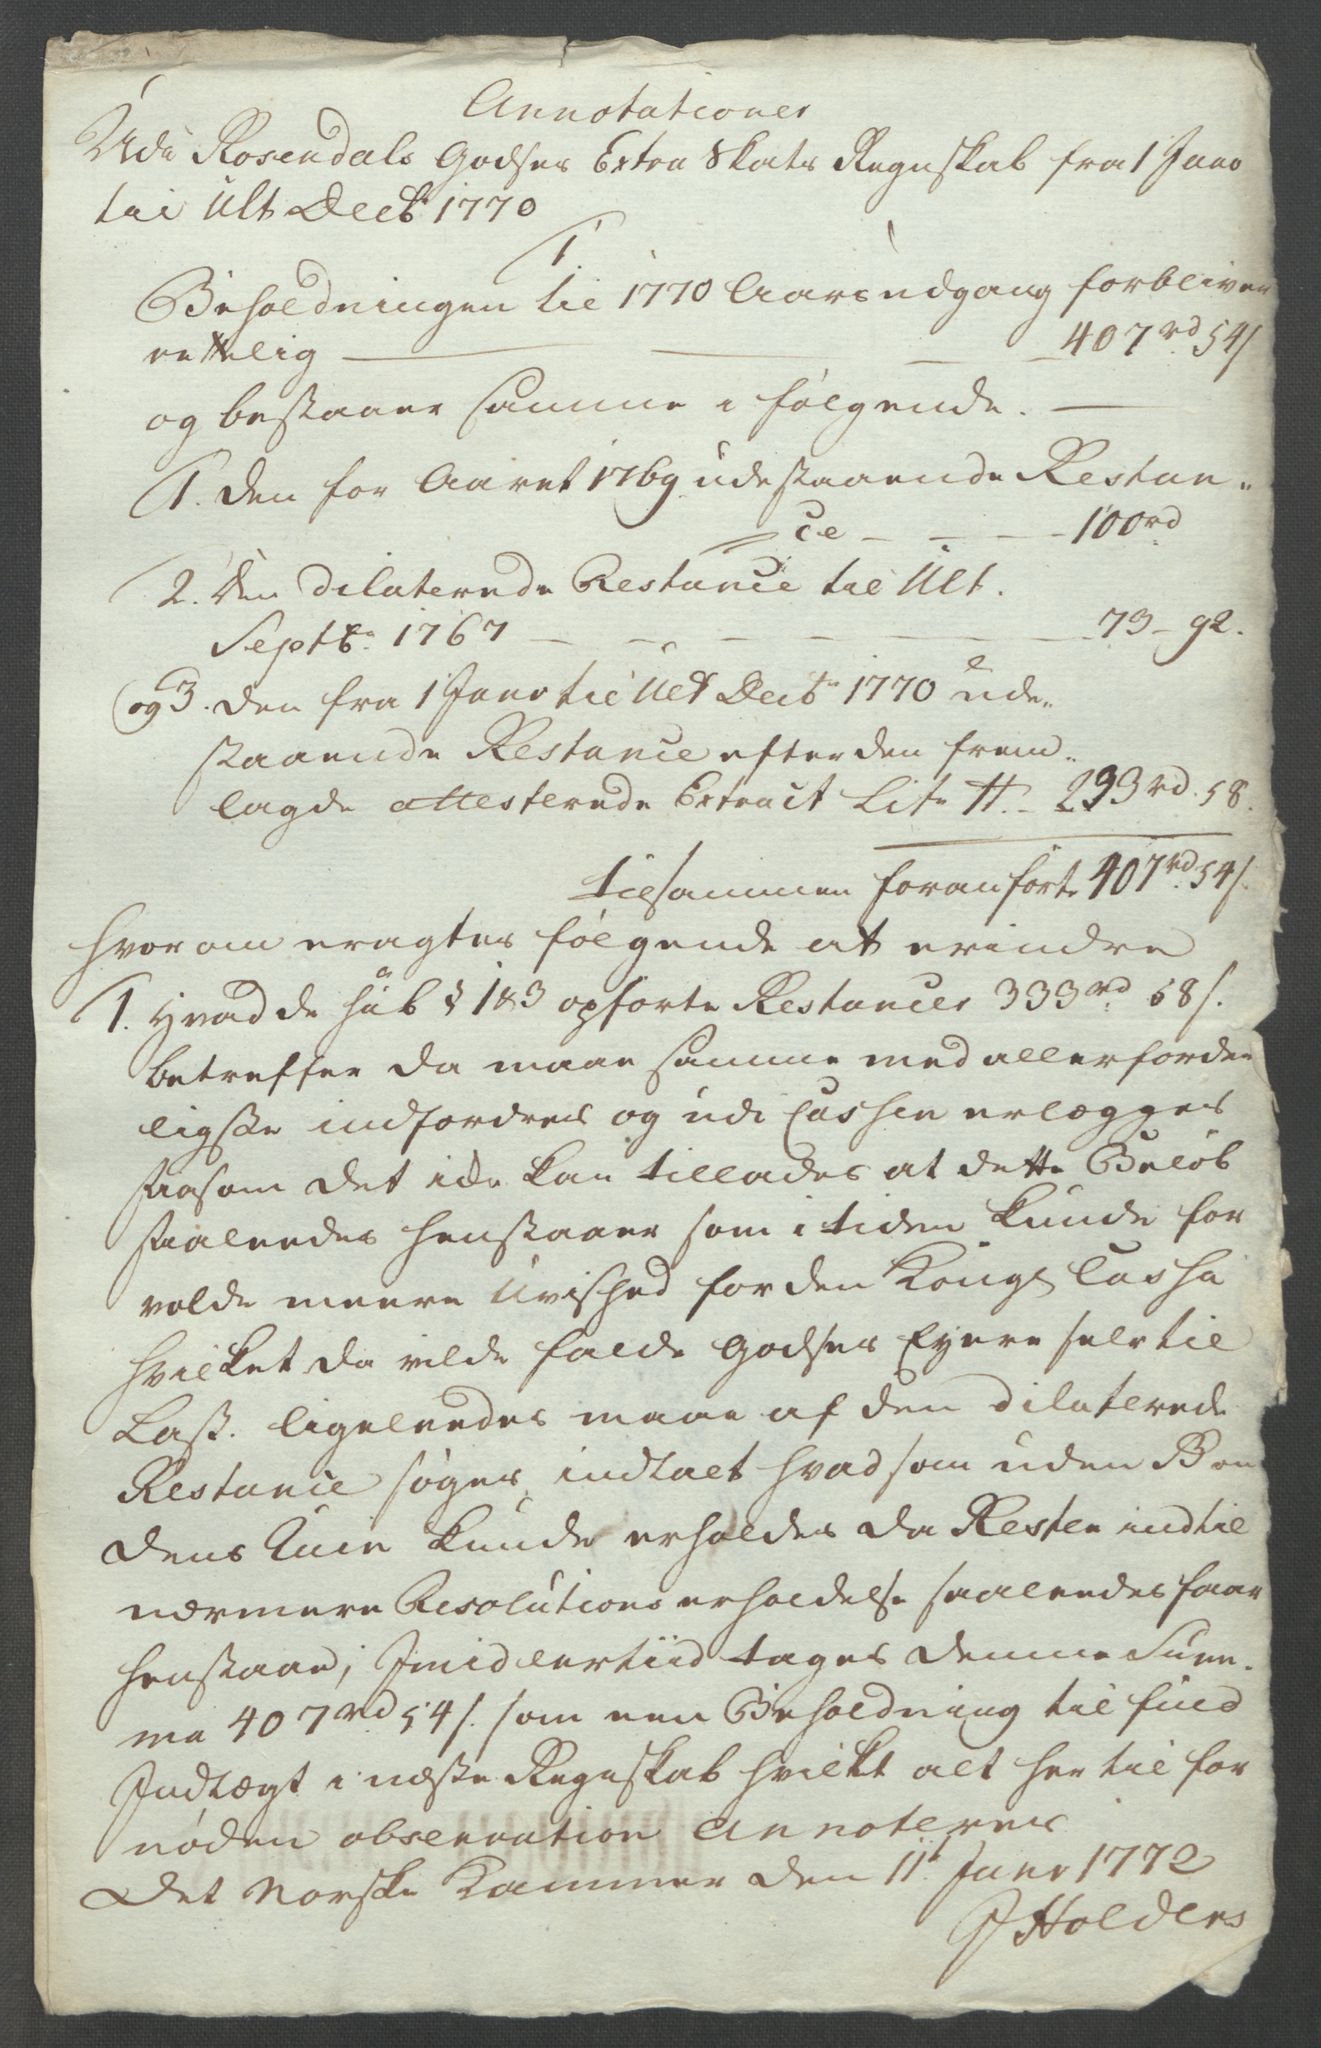 Annotationer
Udi Rosendals Godses Extra Skats Regnskab fra 1 Janr
til Ult Decbr 1770
1
Beholdningen til 1770 Aars udgang forbliver
rettelig — 407 rd 54 s
og bestaaer samme i følgende. —
1. Den for Aaret 1769 udestaaende Restan-
ce — — 100 rd
2. Den dilaterede Restance til Ult.
Septbr. 1767 — — — 73 - 92.
og 3. Den fra 1 Janr til Ult Decbr 1770 ude-
staaende Restance efter den frem-
lagde attesterede Extract Litr H. - 233 rd. 58.
tilsammen foranførte 407 rd. 54 s.
hvorom eragtes følgende at erindre
1. Hvad de sub § 1 & 3 opførte Restancer 333 rd 58 s.
betreffer da maae samme med allerforder
ligste indfordres og udi Cassen erlægges
saasom det icke kan tillades at dette Beløb
saaleedes henstaaer som i tiden kunde for
volde meere Uvished for den Kongl Cassa
hvilket da vilde falde Godses Eyere selv til
Last. ligeleedes maae af den dilaterede
Restance søges indtalt hvad som uden Bon
dens Ruin kunde erholdes da Resten indtil
nærmere Resolutions erholdelse saaleedes faar
henstaae; Imidlertiid tages denne Sum-
ma 407 rd 54 s. som een Beholdning til fuld
Indtægt i næste Regnskab hvilket alt her til for
nøden observation Annoteres
Det Norske Kammer den 11t Janr 1772
J Holders